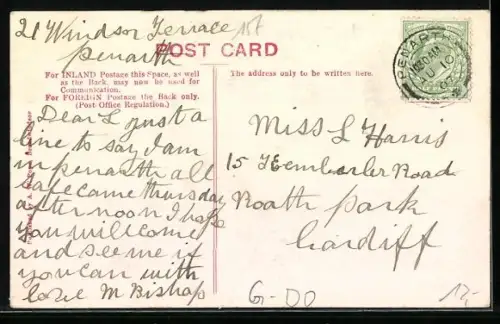 21 Windsor Terrace
Penarth
157
POST CARD
For INLAND Postage this Space, as well
as the Back, may now be used for
Communication.
For FOREIGN Postage the Back only.
(Post Office Regulation.)
The address only to be written here.
Dear L just a
line to say I am
in penarth all
safe came thursday
afternoon I hope
you will come
and see me if
you can with
love M Bishop
Miss L Harris
15 Road
Roath park
Cardiff
G-DO
17,-
PENARTH
JU 10